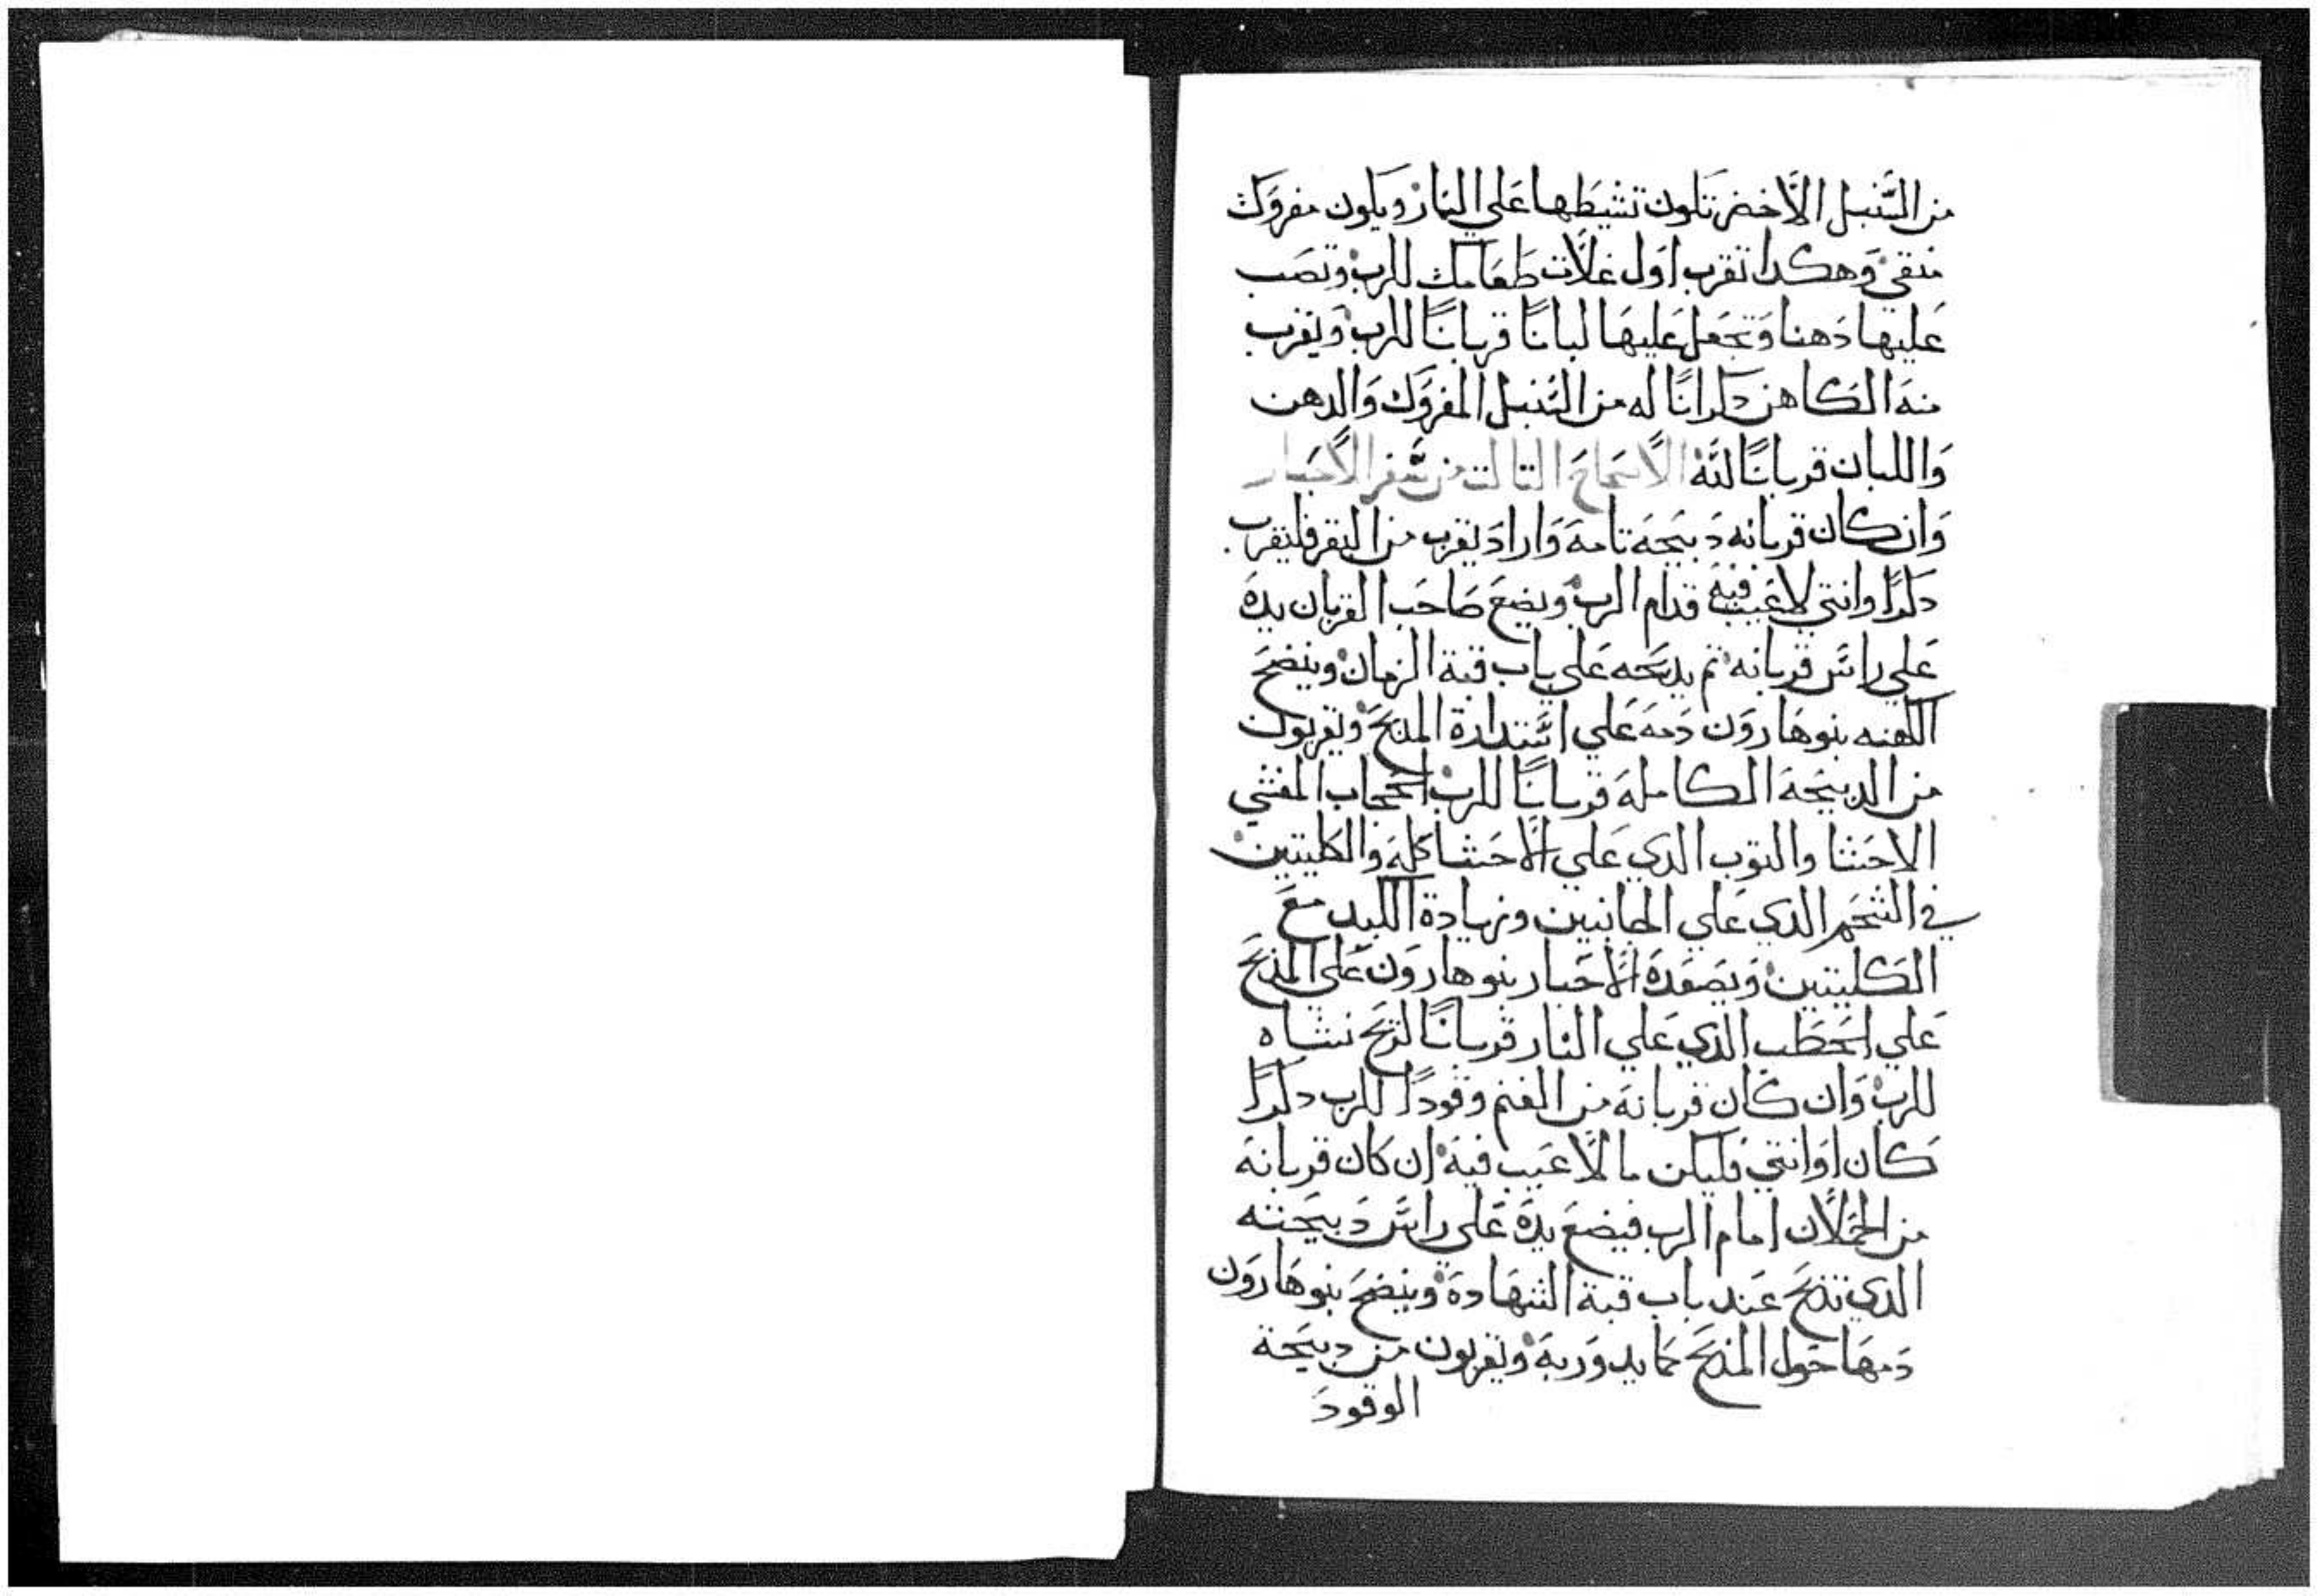 من السنبل الاخضر تكون تشيطها على النار ويكون مفروك
منقي وهكدا تقرب اول غلات طعامك للرب وتصب
عليها دهنا وتجعل عليها لبانًا قربانًا للرب ويقرب
منه الكاهن دكرانًا له من السنبل المفروك والدهن
واللبان قربانًا لله الاصحاح التالت من سفر الاحبار
وان كان قربانه دبيحه تامه واراد يقرب من البقر فليقرب
دكرًا وانتي لا عيب فيه قدام الرب ويضع صاحب القربان يده
علي راس قربانه تم يدبحه علي باب قبة الزمان وينضح
الكهنه بنو هارون دمه علي استدارة المدبح ويقربون
من الدبيحة الكامله قربانًا للرب الحجاب المغشي
الاحشا والتوب الدي علي الاحشا كله والكليتين
في الشحم الدي علي الجانبين وزيادة الكبد مع
الكليتين ويصعده الاحبار بنو هارون على المدبح
علي الحطب الدي علي النار قربانًا لريح نشاه
للرب وان كان قربانه من الغنم وقودًا للرب دكرًا
كان او انتي فليكن مالا عيب فيه ان كان قربانه
من الحملان امام الرب فيضع يده علي راس دبيحته
الدي تدبح عند باب قبة الشهادة وينضح بنو هارون
دمها حول المدبح كما يدور به ويقربون من دبيحة
الوقود